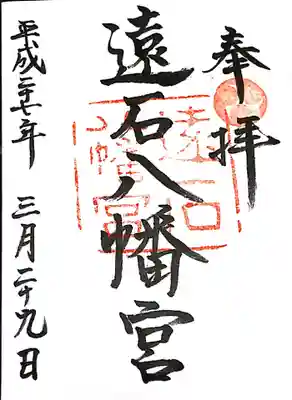 奉拝
遠石八幡宮
遠石
八幡宮
平成二十七年 三月二十九日